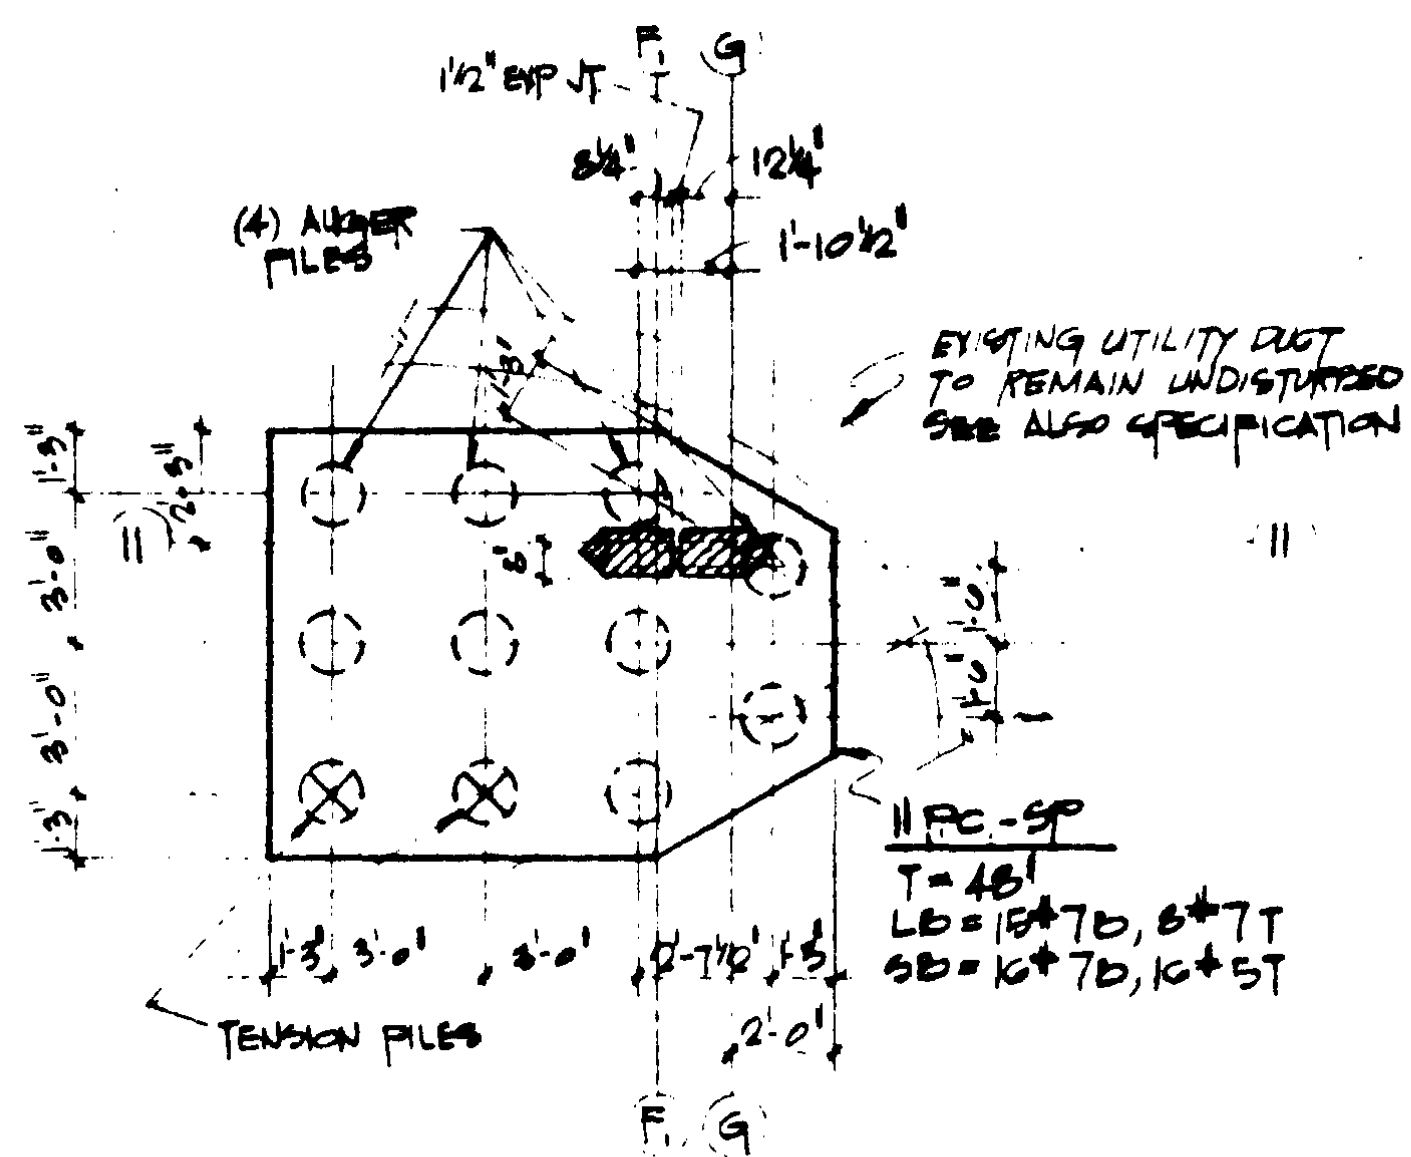 F₁
G
1½" EXP JT
8¼"
12¼"
1'-10½"
(4) AUGER
PILES
1'-3"
EXISTING UTILITY DUCT
TO REMAIN UNDISTURBED
SEE ALSO SPECIFICATION
1'-3"
2'-3"
11
3'-0"
8"
11
1'-6"
1'-6"
3'-0"
1'-3"
11 PC - SP
T = 48"
LB = 15#7B, 8#7T
SB = 16#7B, 16#5T
1'-3"
3'-0"
3'-0"
2'-7½"
1'-3"
TENSION PILES
2'-0"
F₁
G